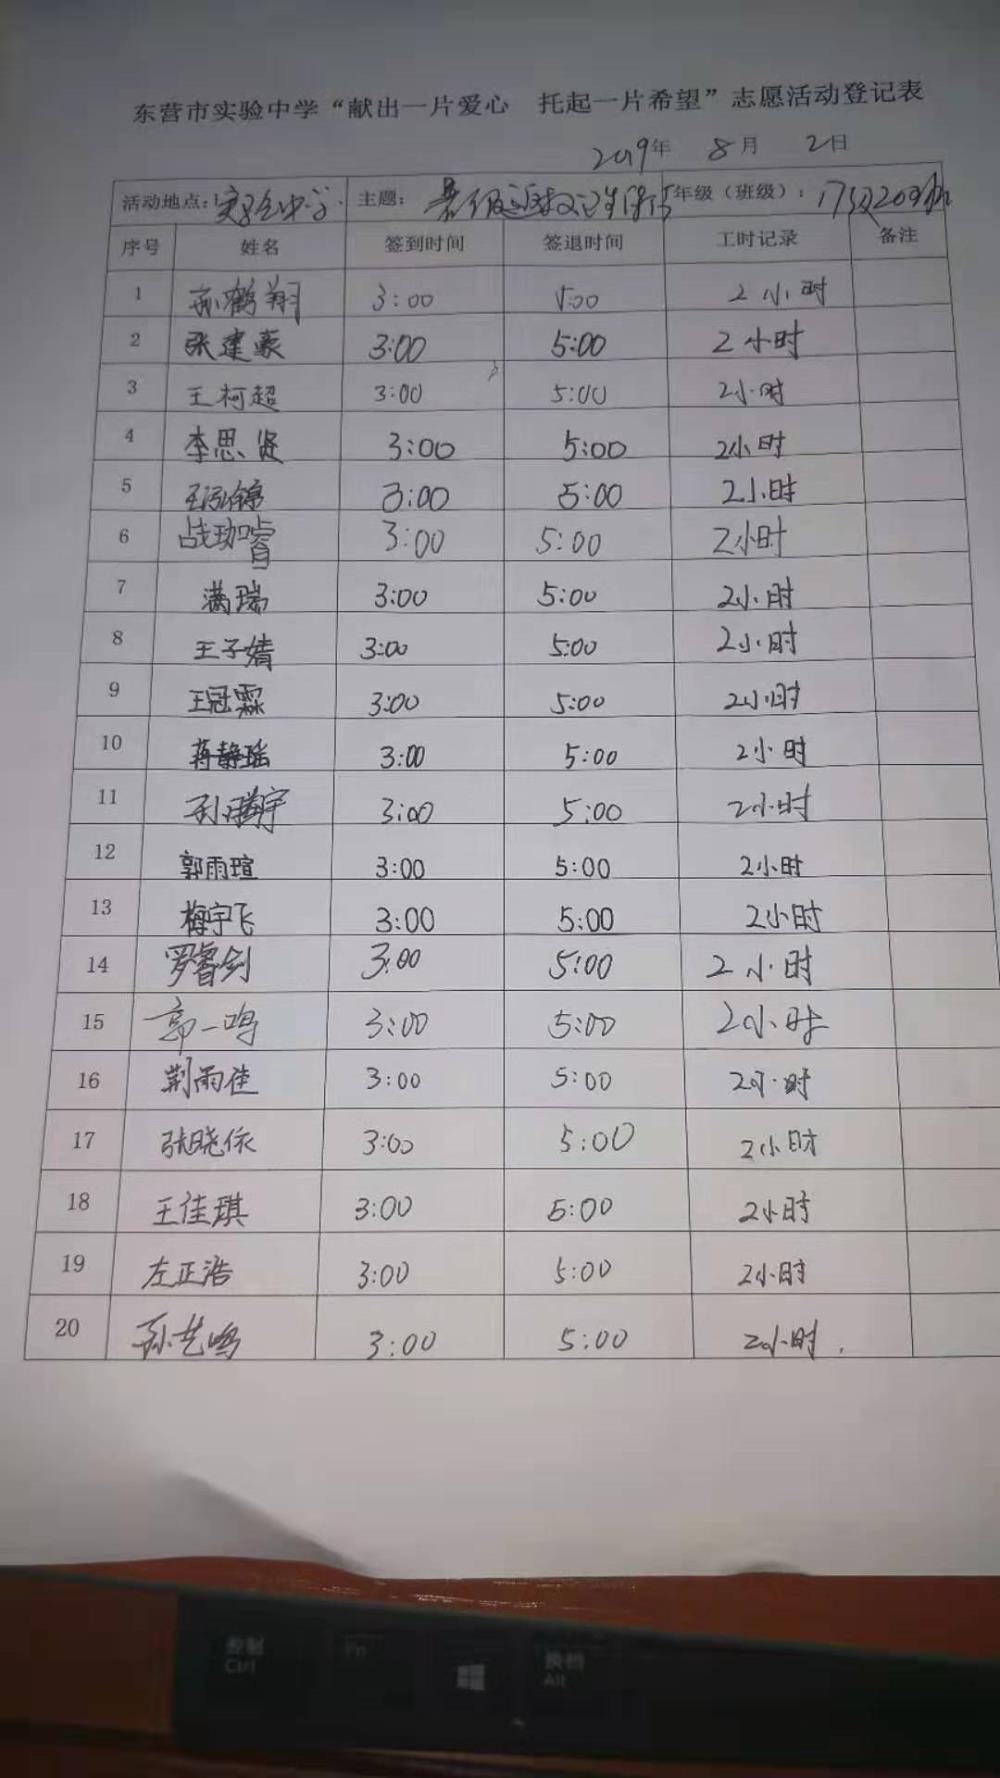 东营市实验中学“献出一片爱心 托起一片希望”志愿活动登记表
2019年 8月 2日
活动地点：实验中学 主题：暑假返校卫生清扫 年级（班级）：17级20班
序号 姓名 签到时间 签退时间 工时记录 备注
1 孙鹤翔 3:00 5:00 2小时
2 张建豪 3:00 5:00 2小时
3 王柯超 3:00 5:00 2小时
4 李思贤 3:00 5:00 2小时
5 王泓锦 3:00 5:00 2小时
6 战珈睿 3:00 5:00 2小时
7 满瑞 3:00 5:00 2小时
8 王子婧 3:00 5:00 2小时
9 王冠霖 3:00 5:00 2小时
10 蒋静瑶 3:00 5:00 2小时
11 3:00 5:00 2小时
12 郭雨瑄 3:00 5:00 2小时
13 梅宇飞 3:00 5:00 2小时
14 罗睿剑 3:00 5:00 2小时
15 郭一鸣 3:00 5:00 2小时
16 荆雨佳 3:00 5:00 2小时
17 张晓依 3:00 5:00 2小时
18 王佳琪 3:00 5:00 2小时
19 左正浩 3:00 5:00 2小时
20 孙艺鸣 3:00 5:00 2小时
控制 Fn 换档
Ctrl Alt